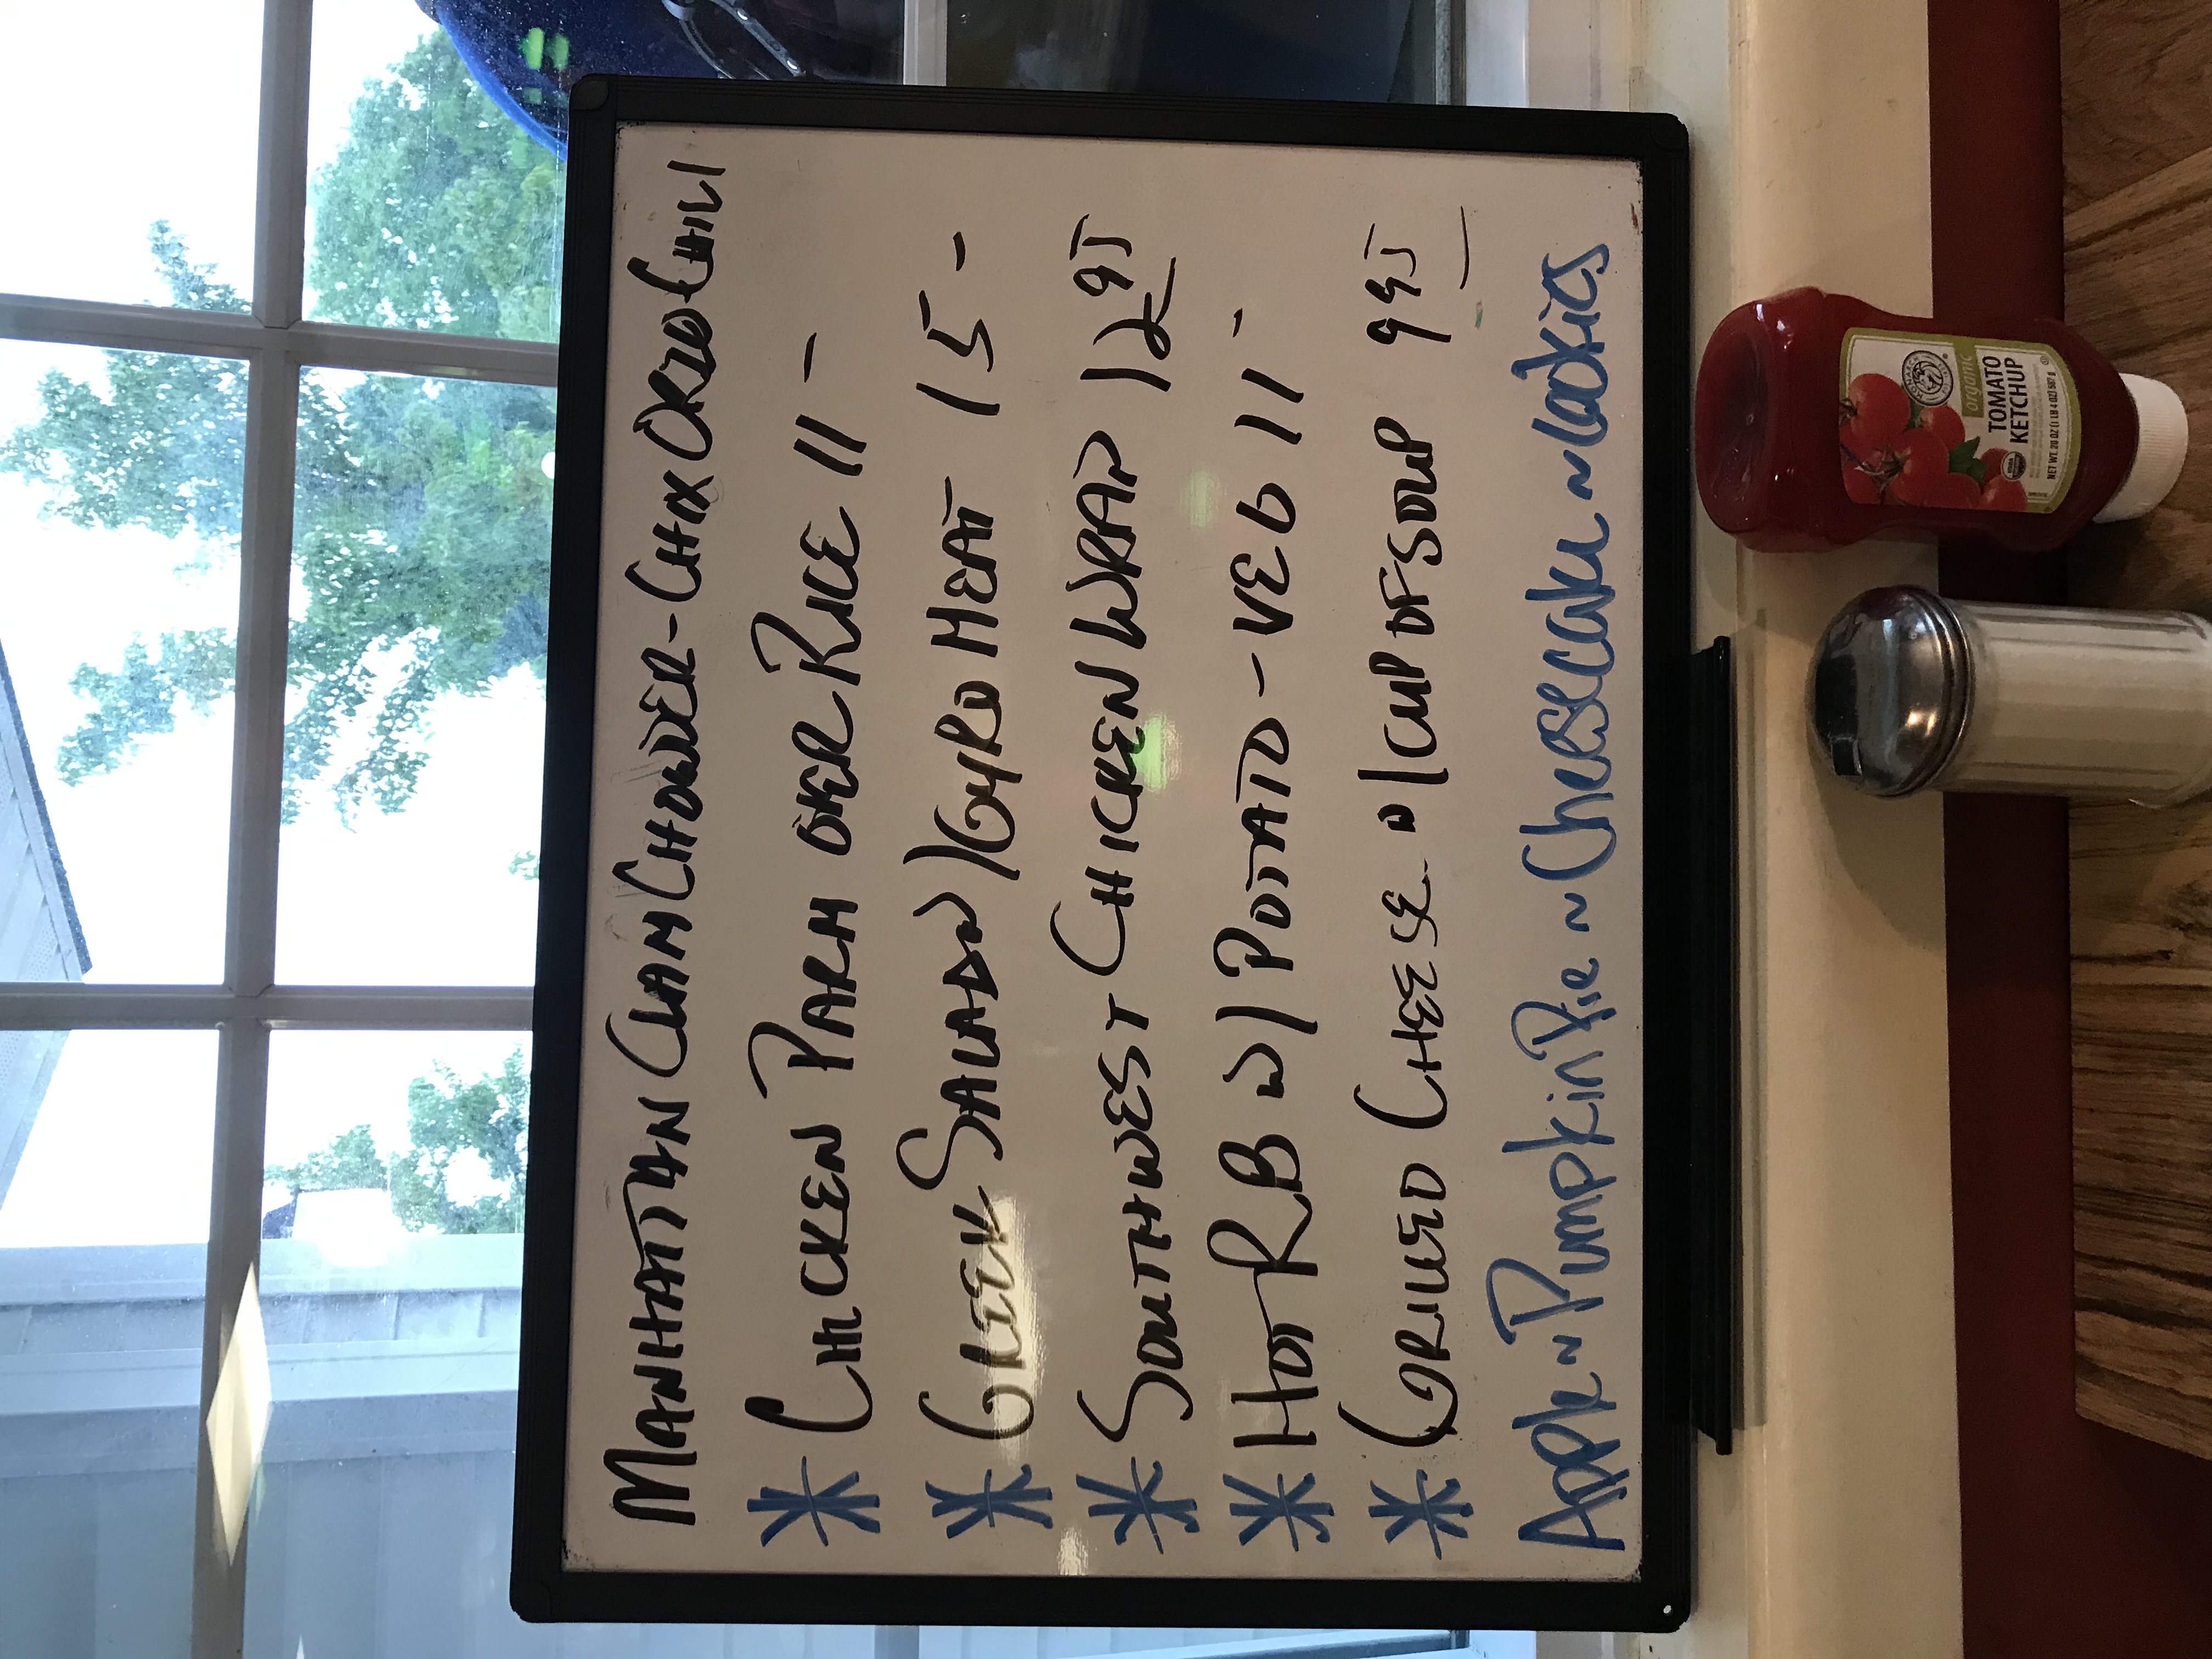 MANHATTAN CLAM CHOWDER - CHIX ORZO CHILI
* CHICKEN PARM OVER RICE 11 -
* GREEK SALAD W/ GYRO MEAT 15 -
* SOUTHWEST CHICKEN WRAP 12 95
* HOT RB W/ POTATO - VEG 11 -
* GRILLED CHEESE W/ CUP OF SOUP 9 95
Apple ~ Pumpkin Pie ~ Cheesecake ~ Cookies
organic
TOMATO
KETCHUP
NET WT. 20 OZ (1 LB 4 OZ) 567 g